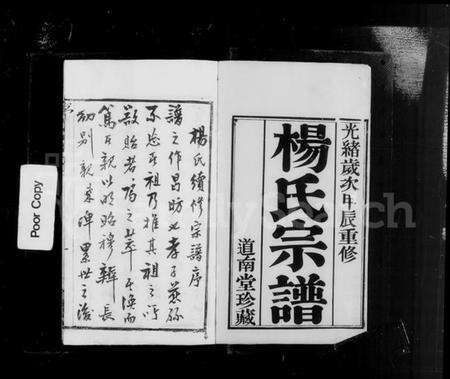 光緒歲次甲辰重修
楊氏宗譜
道南堂珍藏
楊氏續修宗譜序
譜之作昌昉乎孝子慈孫
不忘其祖乃推其祖之所
篤其親以明昭穆辨長
幼別親疎俾累世之後
Poor Copy